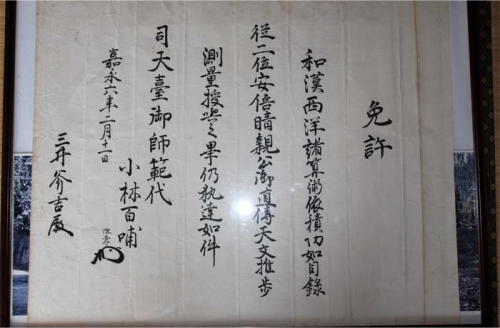 免許
和漢西洋諸算術依積功如目録
従二位安倍晴親公御直傳天文推歩
測量授与之畢仍執達如件
司天臺御師範代
小林百哺
嘉永六年二月十一日
三井斧吉殿